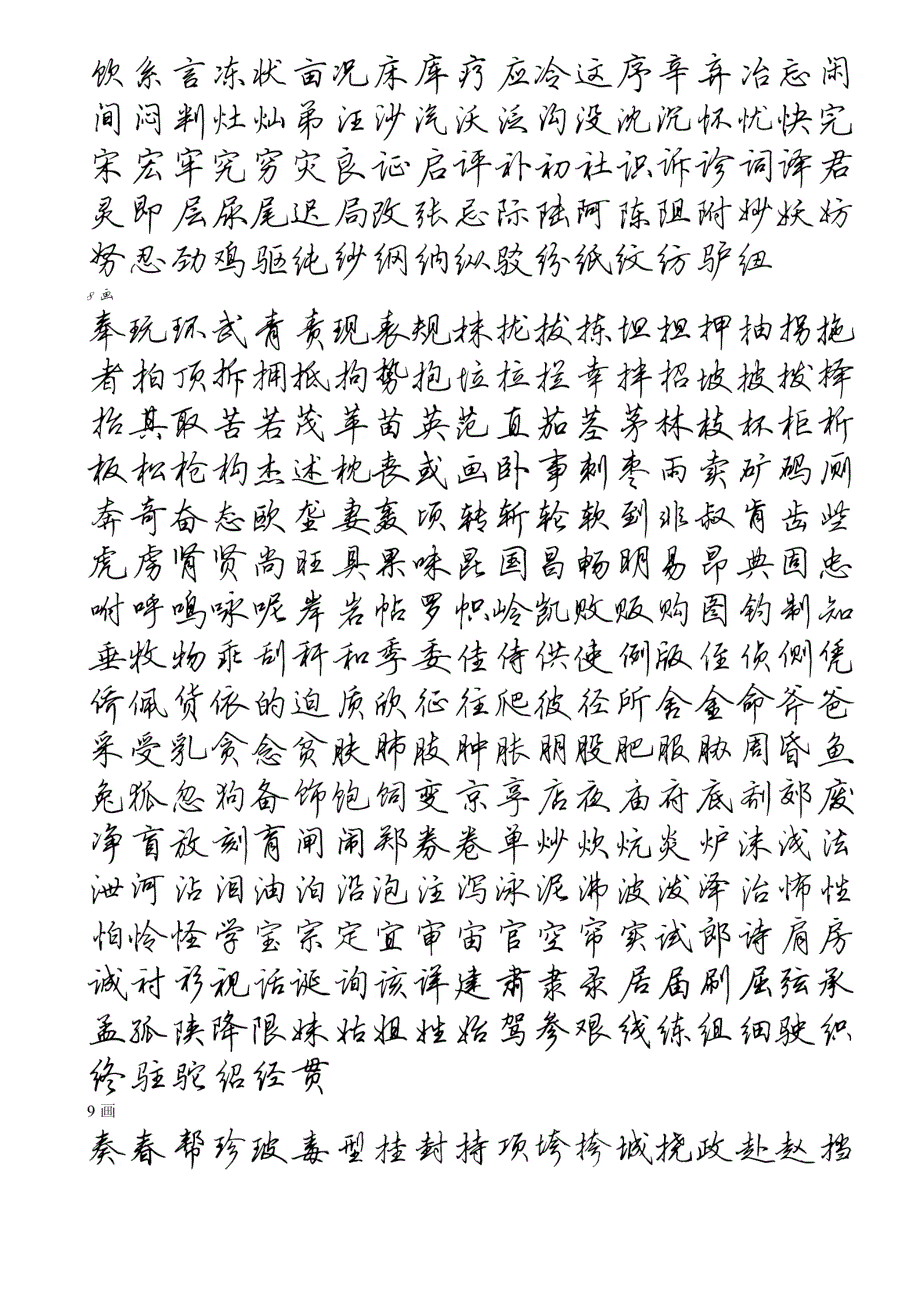 饮系言冻状亩况床库疗应冷这序辛弃冶忘闲
间闷判灶灿弟汪沙汽沃泛沟没沈沉怀忧快完
宋宏牢究穷灾良证启评补初社识诉诊词译君
灵即层尿尾迟局改张忌际陆阿陈阻附妙妖妨
努忍劲鸡驱纯纱纲纳纵驳纷纸纹纺驴纽
8 画
奉玩环武青责现表规抹拢拔拣坦担押抽拐拖
者拍顶拆拥抵拘势抱垃拉拦幸拌招坡披拨择
抬其取苦若茂苹苗英范直茄茎茅林枝杯柜析
板松枪构杰述枕丧或画卧事刺枣雨卖矿码厕
奔奇奋态欧垄妻轰顷转斩轮软到非叔肯齿些
虎虏肾贤尚旺具果味昆国昌畅明易昂典固忠
咐呼鸣咏呢岸岩帖罗帜岭凯败贩购图钓制知
垂牧物乖刮秆和季委佳侍供使例版侄侦侧凭
侨佩货依的迫质欣征往爬彼径所舍金命斧爸
采受乳贪念贫肤肺肢肿胀朋股肥服胁周昏鱼
兔狐忽狗备饰饱饲变京享店夜庙府底剂郊废
净盲放刻育闸闹郑券卷单炒炊炕炎炉沫浅法
泄河沾泪油泊沿泡注泻泳泥沸波泼泽治怖性
怕怜怪学宝宗定宜审宙官空帘实试郎诗肩房
诚衬衫视话诞询该详建肃隶录居届刷屈弦承
孟孤陕降限妹姑姐姓始驾参艰线练组细驶织
终驻驼绍经贯
9 画
奏春帮珍玻毒型挂封持项垮挎城挠政赴赵挡